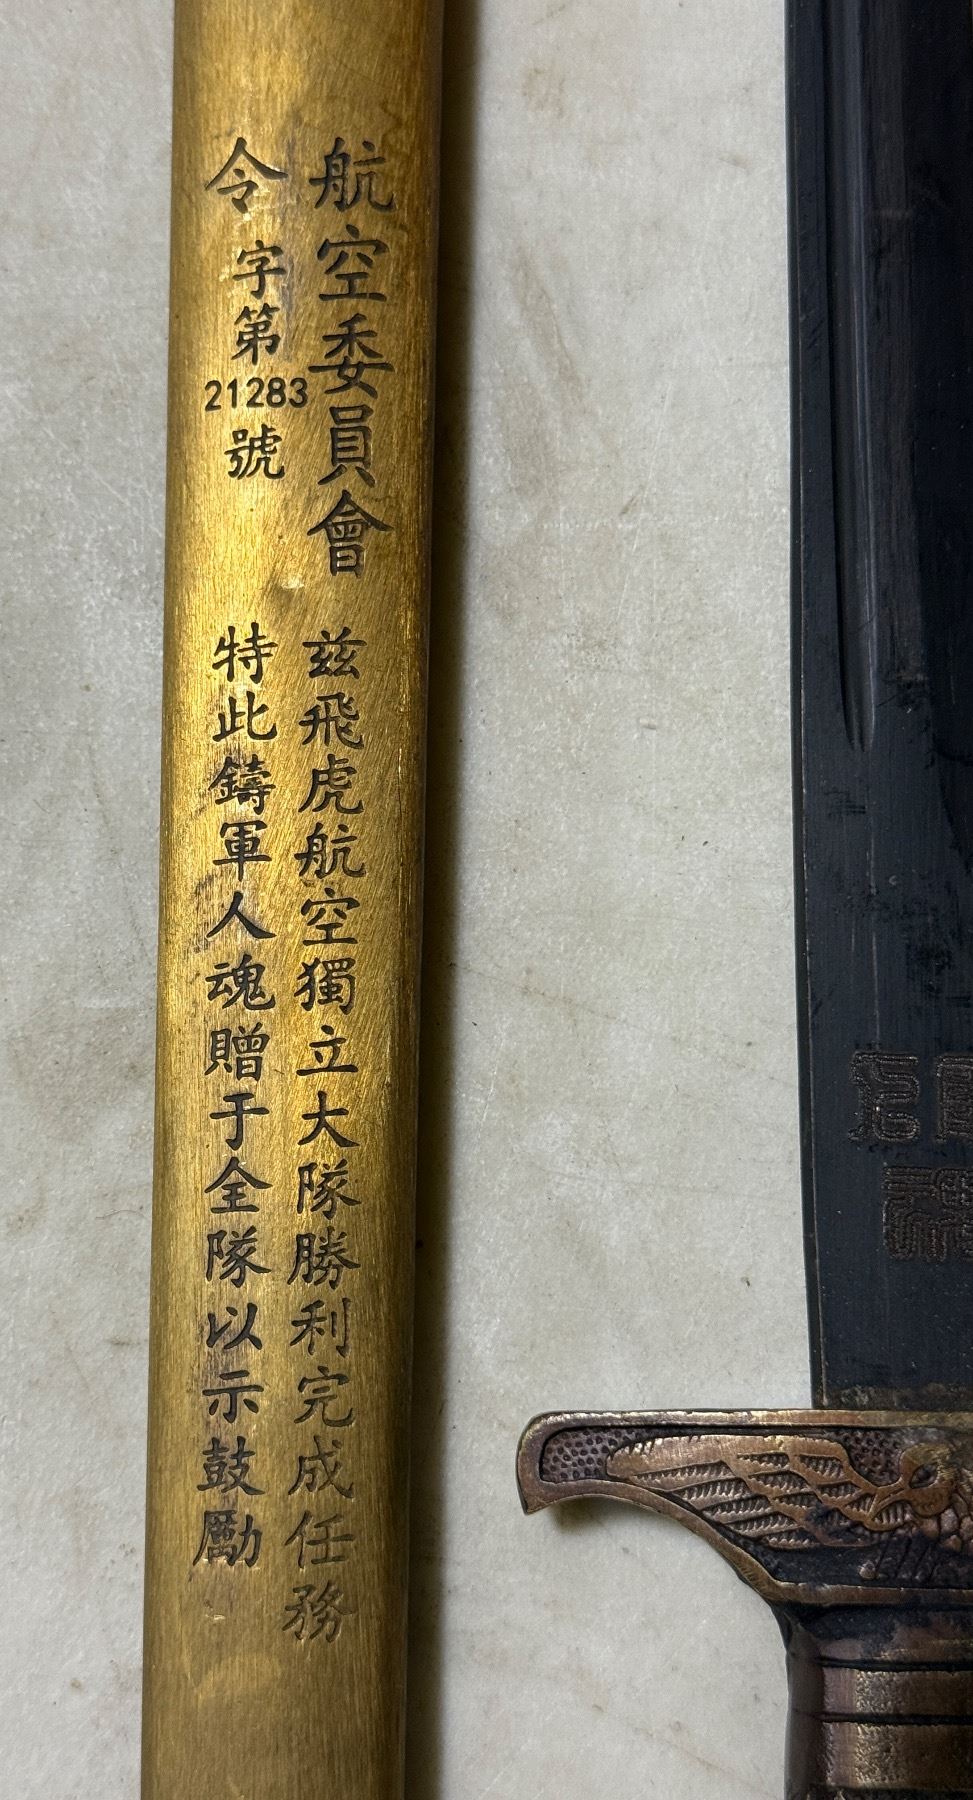 航空委員會
令字第21283號
兹飛虎航空獨立大隊勝利完成任務
特此鑄軍人魂贈于全隊以示鼓勵